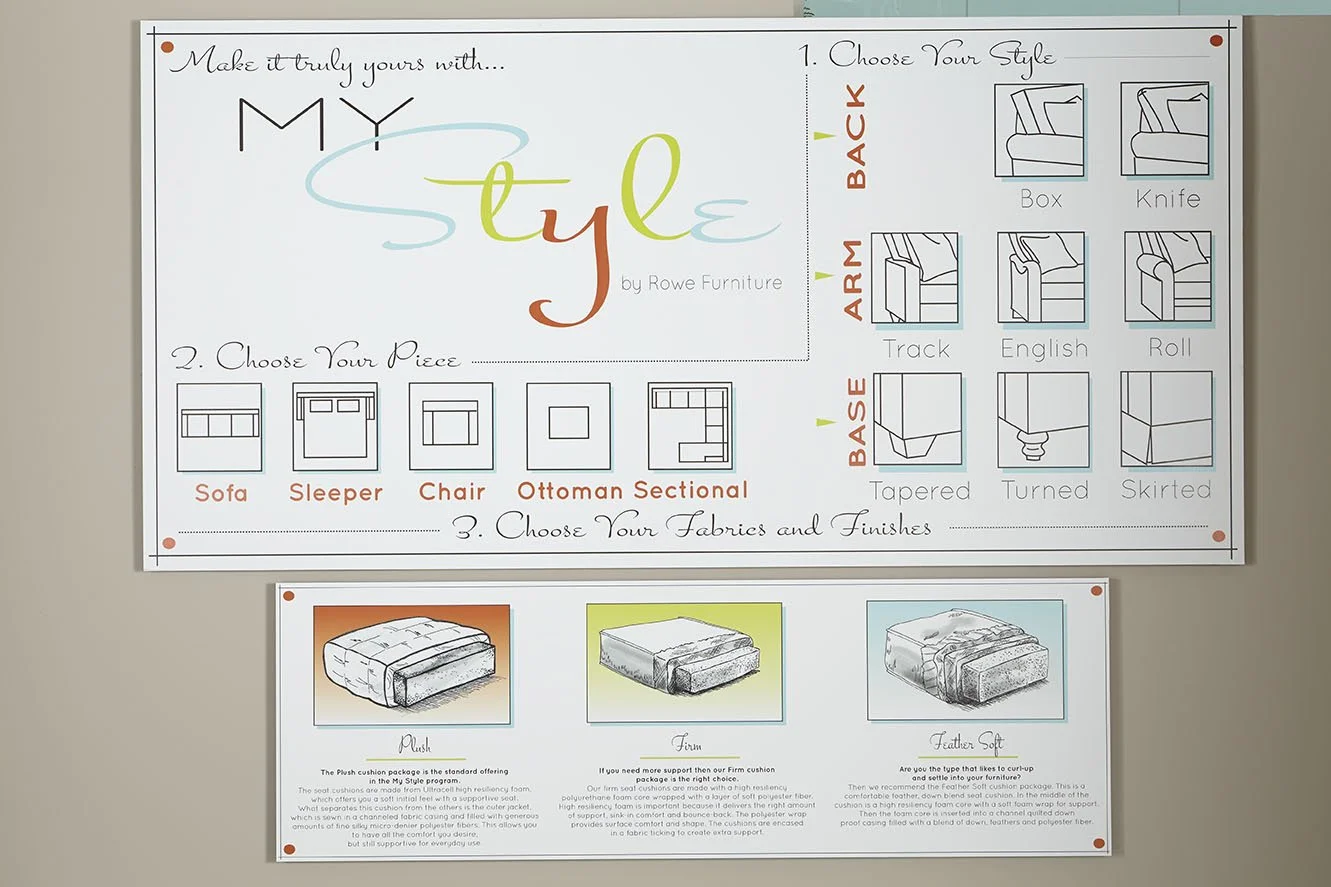 Make it truly yours with...
MY
Style
by Rowe Furniture
1. Choose Your Style
BACK
Box
Knife
ARM
Track
English
Roll
BASE
Tapered
Turned
Skirted
2. Choose Your Piece
Sofa
Sleeper
Chair
Ottoman
Sectional
3. Choose Your Fabrics and Finishes
Plush
The Plush cushion package is the standard offering
in the My Style program.
The seat cushions are made from Ultracell high resiliency foam,
which offers you a soft initial feel with a supportive seat.
What separates this cushion from the others is the outer jacket,
which is sewn in a channeled fabric casing and filled with generous
amounts of fine silky micro-denier polyester fibers. This allows you
to have all the comfort you desire,
but still supportive for everyday use.
Firm
If you need more support then our Firm cushion
package is the right choice.
Our firm seat cushions are made with a high resiliency
polyurethane foam core wrapped with a layer of soft polyester fiber.
High resiliency foam is important because it delivers the right amount
of support, sink-in comfort and bounce-back. The polyester wrap
provides surface comfort and shape. The cushions are encased
in a fabric ticking to create extra support.
Feather Soft
Are you the type that likes to curl-up
and settle into your furniture?
Then we recommend the Feather Soft cushion package. This is a
comfortable feather, down blend seat cushion. In the middle of the
cushion is a high resiliency foam core with a soft foam wrap for support.
Then the foam core is inserted into a channel quilted down
proof casing filled with a blend of down, feathers and polyester fiber.